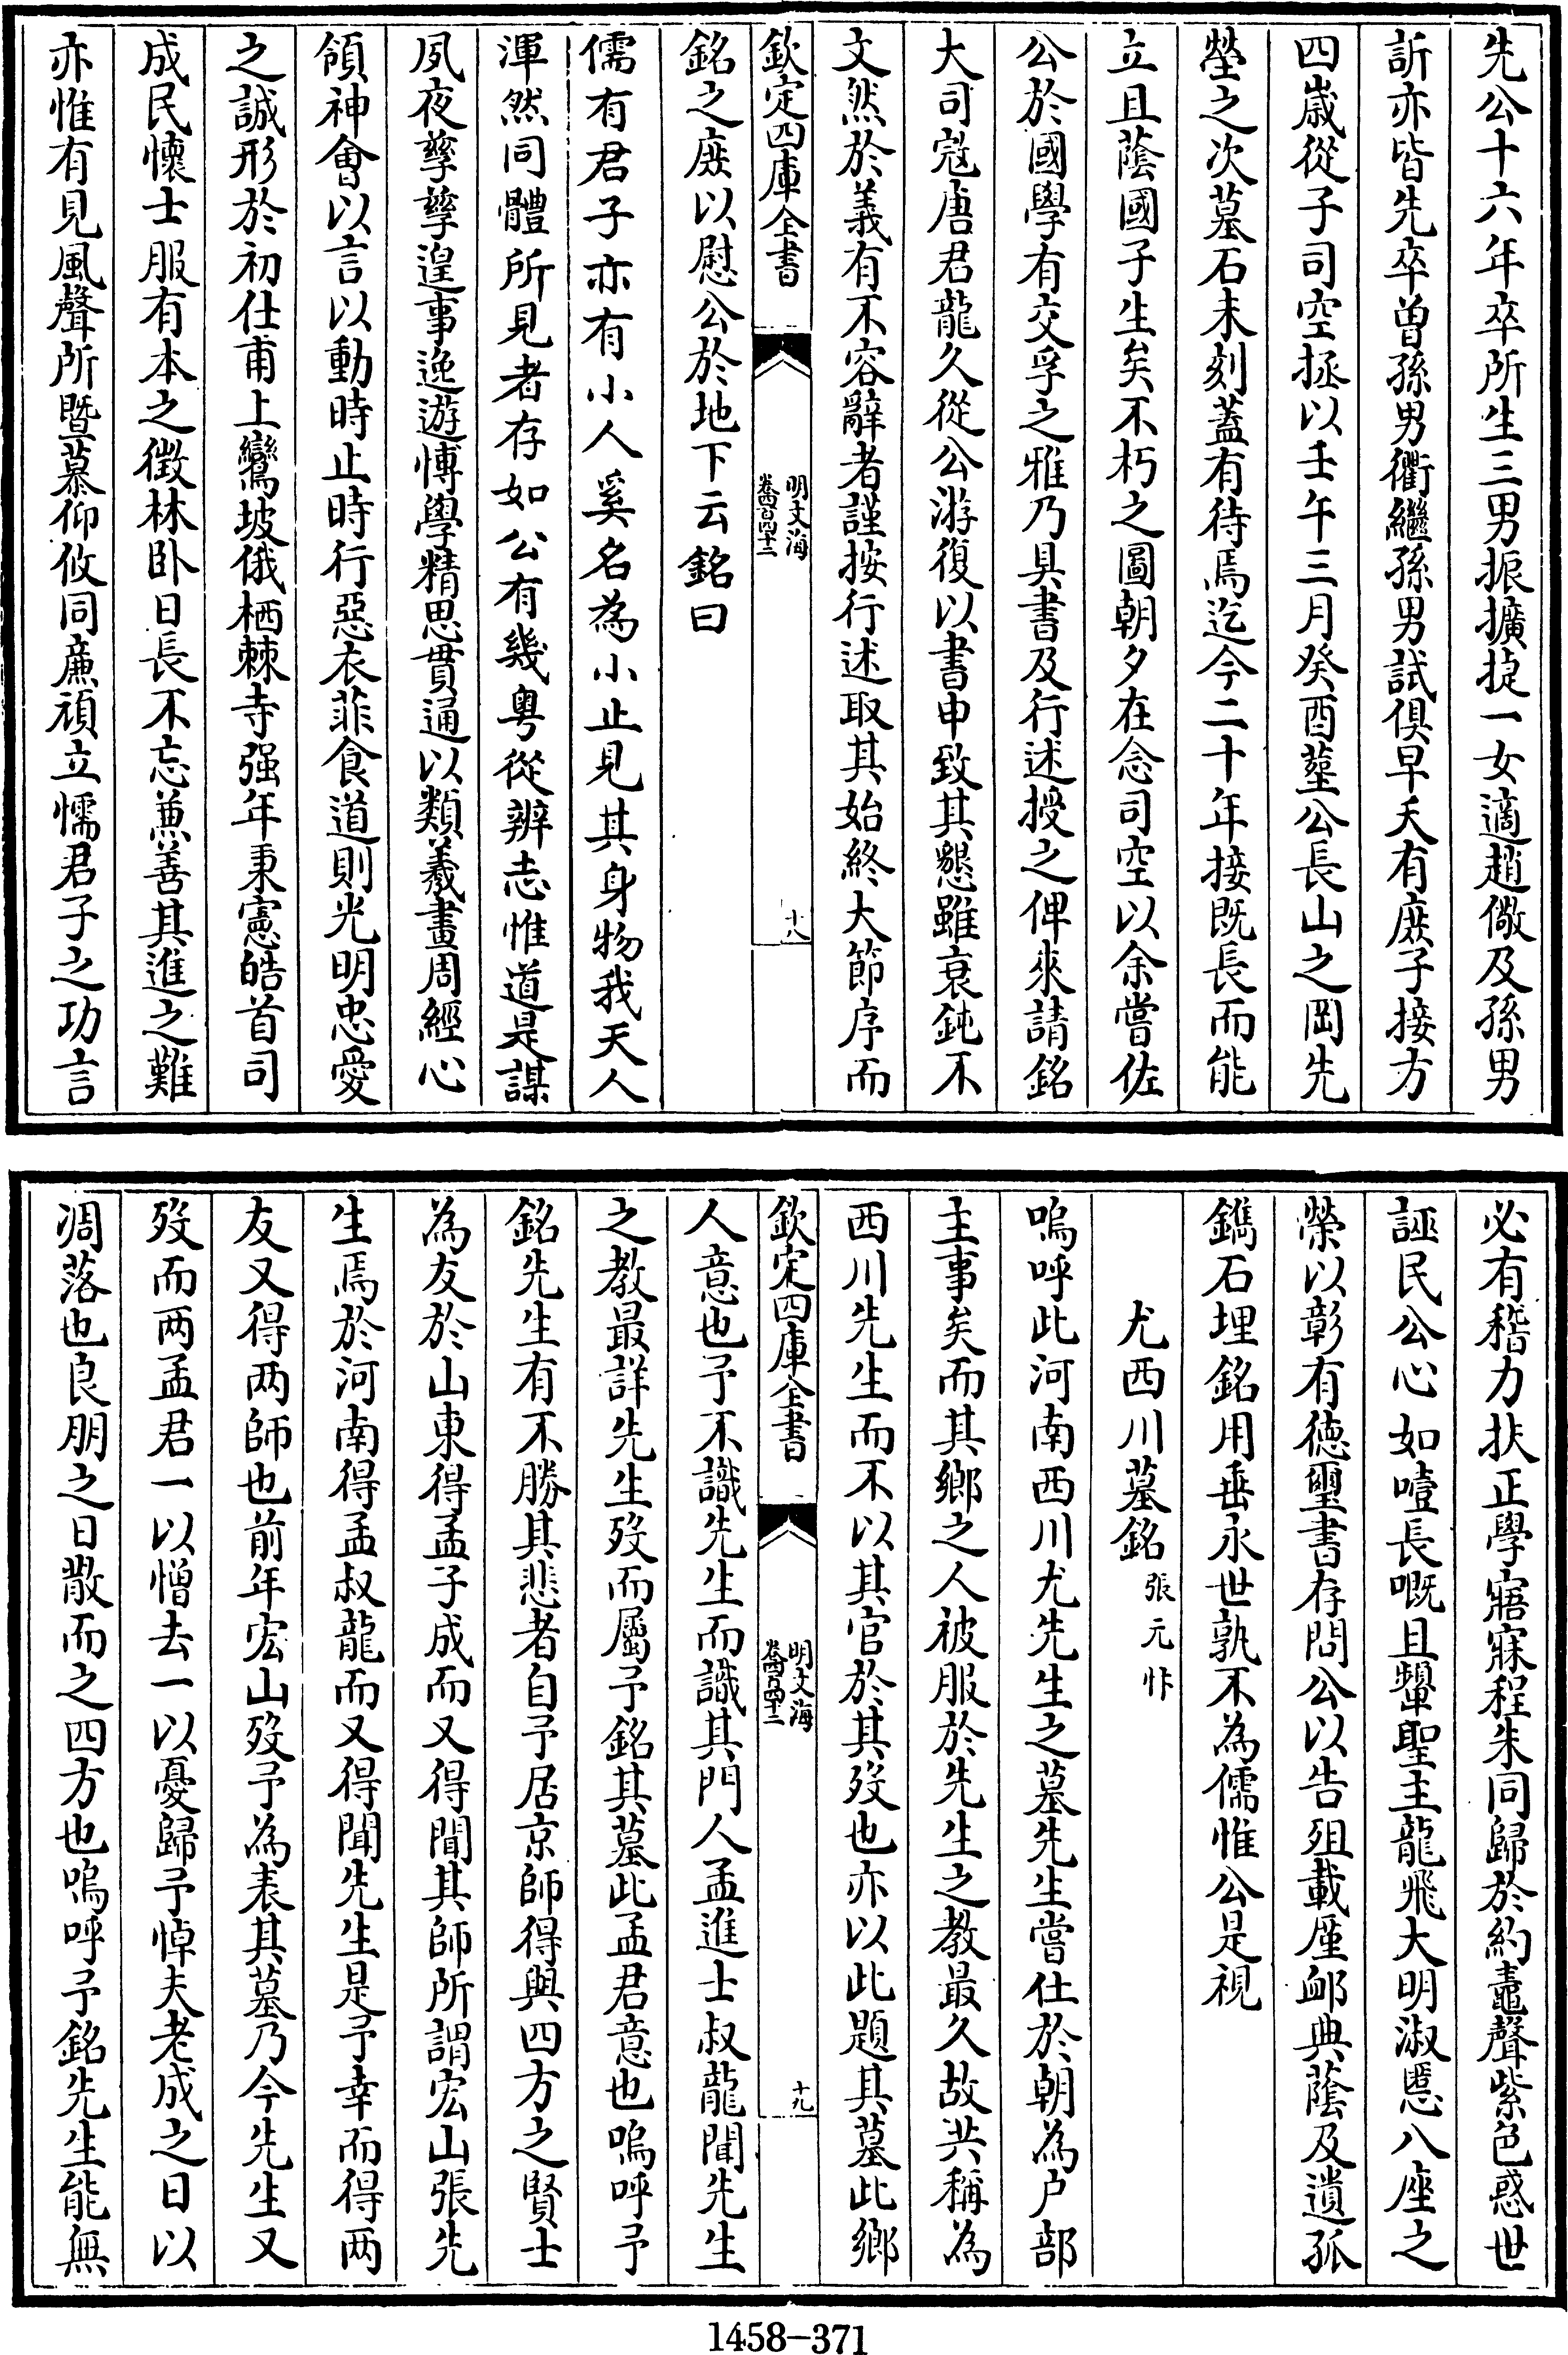 先公十六年卒所生三男振擴捷一女適趙儆及孫男
訢亦皆先卒曾孫男衢繼孫男試俱早夭有庶子接方
四歲從子司空拯以壬午三月癸酉塟公長山之岡先
塋之次墓石未刻蓋有待焉迄今二十年接既長而能
立且蔭國子生矣不朽之圖朝夕在念司空以余嘗佐
公於國學有交孚之雅乃具書及行述授之俾來請銘
大司宼唐君龍久從公游復以書申致其懇雖衰鈍不
文然於義有不容辭者謹按行述取其始終大節序而
欽定四庫全書
明文海
卷四百四十二
十八
銘之庶以慰公於地下云銘曰
儒有君子亦有小人奚名為小止見其身物我天人
渾然同體所見者存如公有幾粤從辨志惟道是謀
夙夜孳孳遑事逸遊慱學精思貫通以類羲畫周經心
領神會以言以動時止時行惡衣菲食道則光明忠愛
之誠形於初仕甫上鸞坡俄栖棘寺强年秉憲皓首司
成民懷士服有本之徵林卧日長不忘兼善其進之難
亦惟有見風聲所曁慕仰攸同廉頑立懦君子之功言
必有稽力扶正學寤寐程朱同歸於約鼃聲紫色惑世
誣民公心如噎長嘅且顰聖主龍飛大明淑慝八座之
榮以彰有德璽書存問公以告殂載厪卹典蔭及遺孤
鐫石埋銘用垂永世孰不為儒惟公是視
尤西川墓銘 張元忭
嗚呼此河南西川尤先生之墓先生嘗仕於朝為户部
主事矣而其鄉之人被服於先生之教最久故共稱為
西川先生而不以其官於其歿也亦以此題其墓此鄉
欽定四庫全書
明文海
卷四百四十二
十九
人意也予不識先生而識其門人孟進士叔龍聞先生
之教最詳先生歿而屬予銘其墓此孟君意也嗚呼予
銘先生有不勝其悲者自予居京師得與四方之賢士
為友於山東得孟子成而又得聞其師所謂宏山張先
生焉於河南得孟叔龍而又得聞先生是予幸而得两
友又得两師也前年宏山歿予為表其墓乃今先生又
歿而两孟君一以憎去一以憂歸予悼夫老成之日以
凋落也良朋之日散而之四方也嗚呼予銘先生能無
1458-371